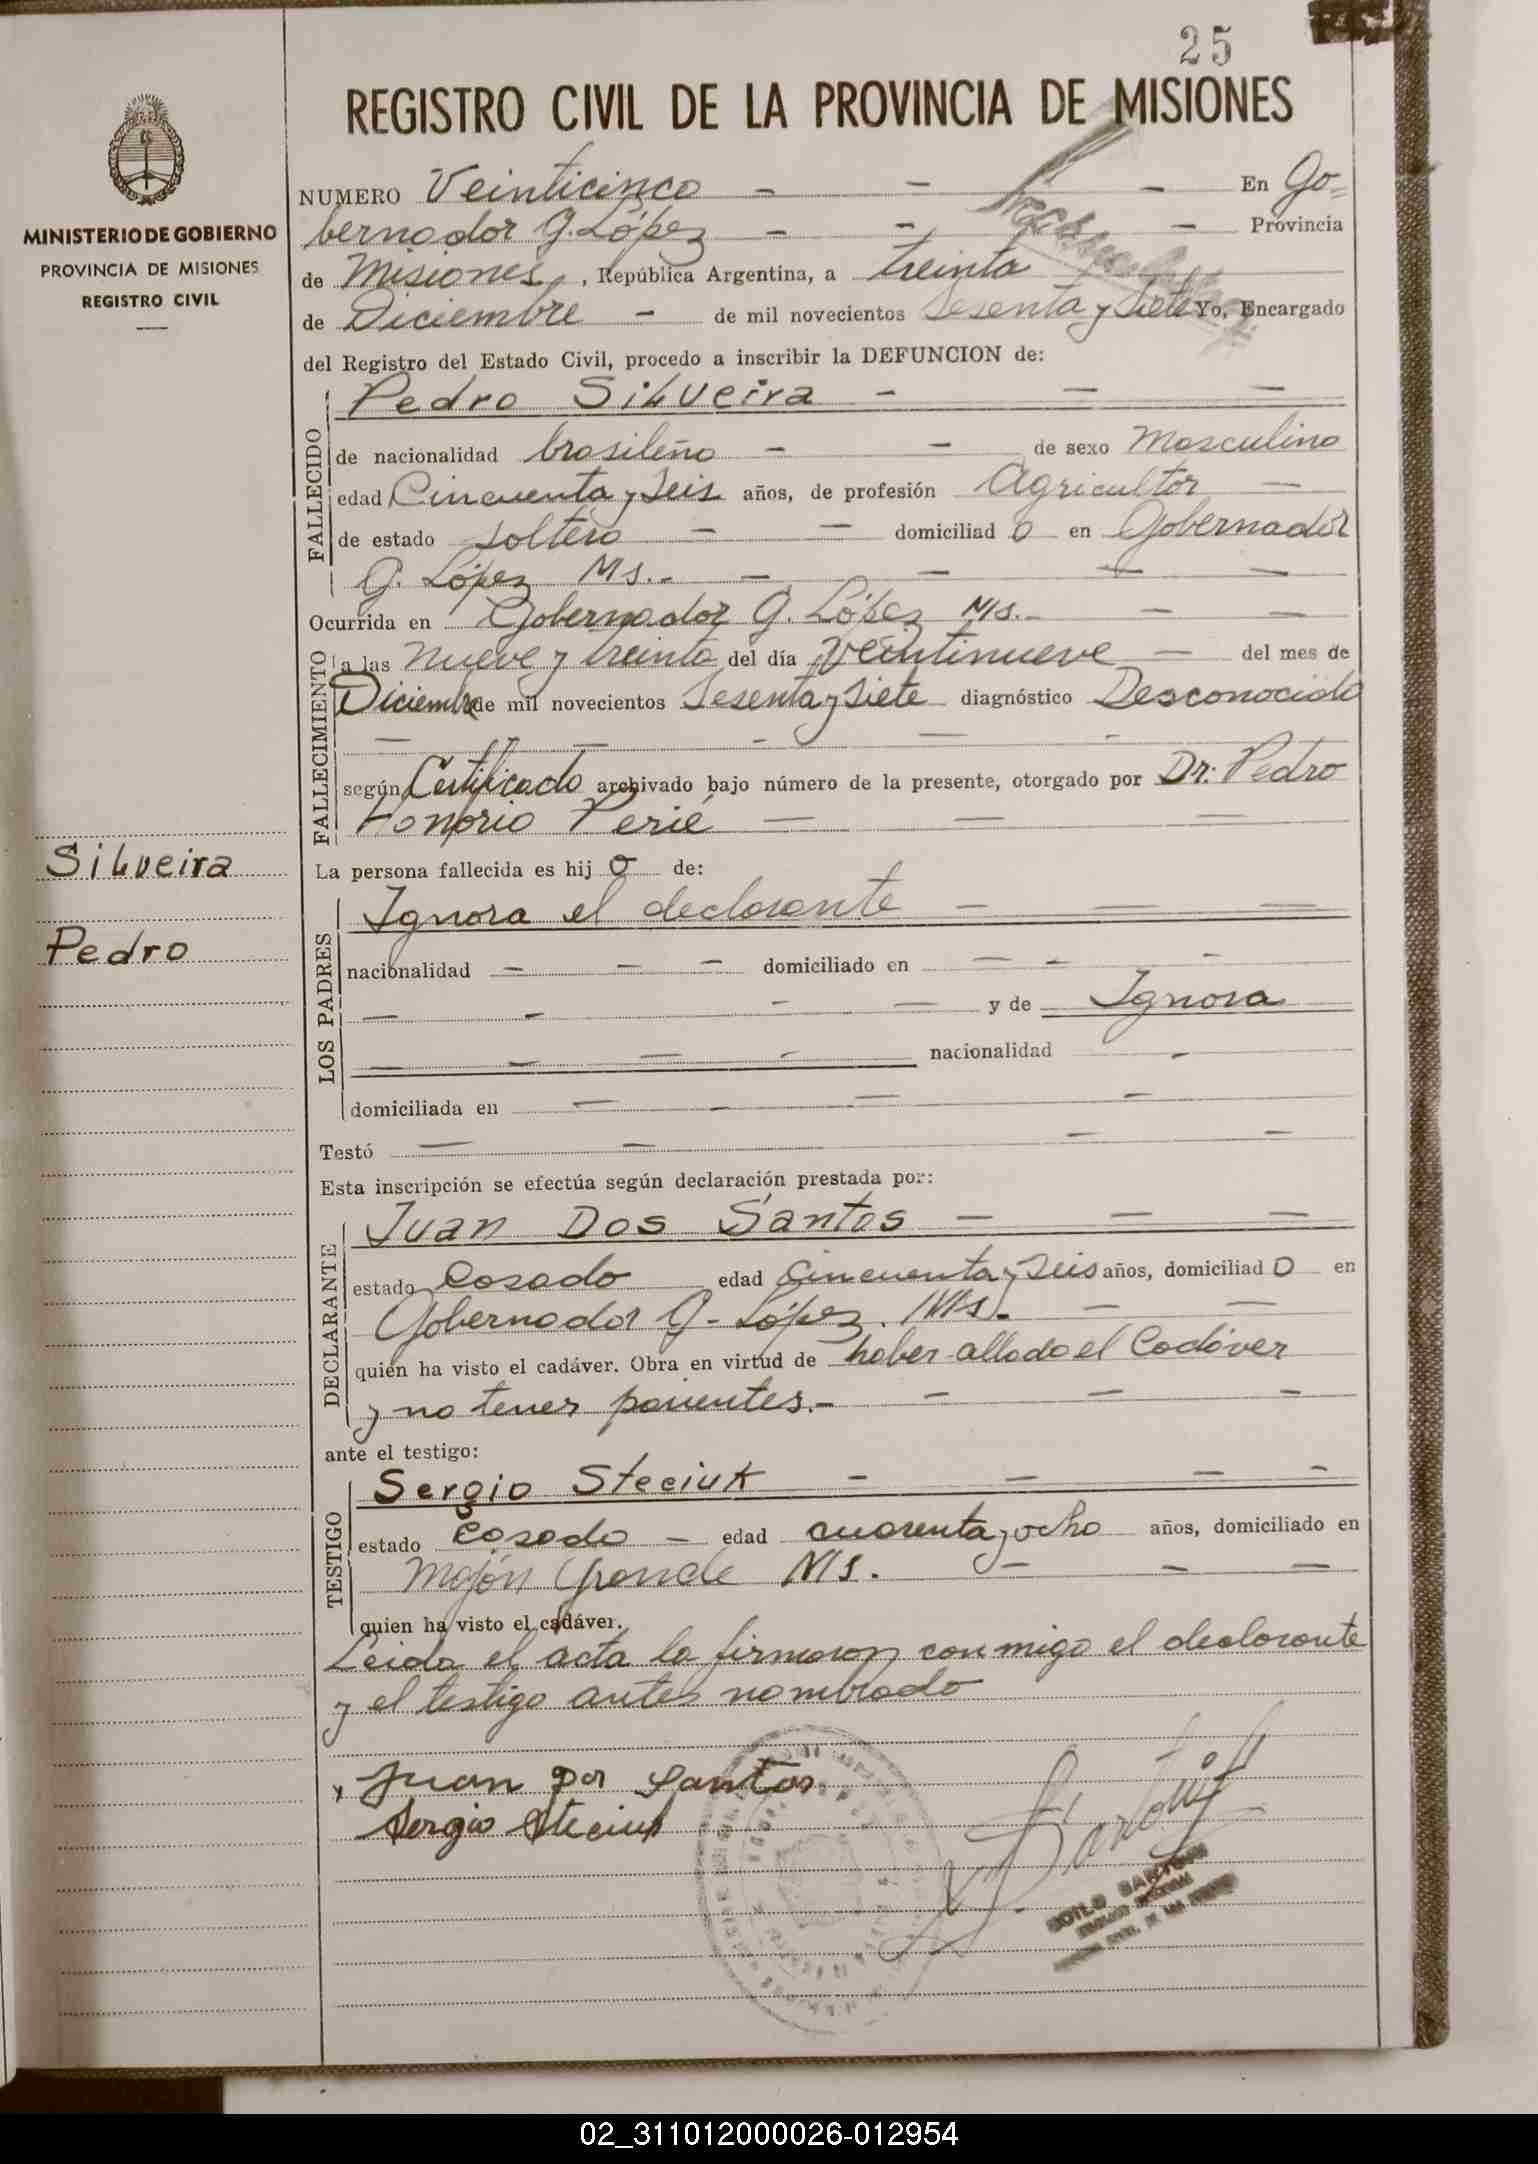 25
REGISTRO CIVIL DE LA PROVINCIA DE MISIONES
MINISTERIO DE GOBIERNO
PROVINCIA DE MISIONES
REGISTRO CIVIL
NUMERO Veinticinco - - - En Go=
bernador G. López - - - Provincia
de Misiones, República Argentina, a treinta
de Diciembre - de mil novecientos sesenta y siete Yo, Encargado
del Registro del Estado Civil, procedo a inscribir la DEFUNCION de:
FALLECIDO
Pedro Silveira - - -
de nacionalidad brasileño - - de sexo Masculino
edad Cincuenta y seis años, de profesión Agricultor -
de estado soltero - - domiciliad o en Gobernador
G. López Ms.- - - - -
Ocurrida en Gobernador G. López Ms.- - -
FALLECIMIENTO
a las nueve y treinta del día veintinueve - del mes de
Diciembre de mil novecientos sesenta y siete diagnóstico Desconocido
- - - - -
según Certificado archivado bajo número de la presente, otorgado por Dr. Pedro
Honorio Perié - - -
Silveira
Pedro
La persona fallecida es hij o de:
LOS PADRES
Ignora el declarante - - -
nacionalidad - - - domiciliado en - - -
- - - - y de Ignora
- - - - nacionalidad -
domiciliada en - - - -
Testó - - - -
Esta inscripción se efectúa según declaración prestada por:
DECLARANTE
Juan Dos Santos - - -
estado Casado edad Cincuenta y seis años, domiciliad o en
Gobernador G. López. Ms. - -
quién ha visto el cadáver. Obra en virtud de haber allado el Cadáver
y no tener parientes.- - - -
ante el testigo:
TESTIGO
Sergio Steciuk - - - -
estado Casado - edad cuarenta y ocho años, domiciliado en
Mojón Grande Ms. - - -
quien ha visto el cadáver.
Leida el acta la firmaron conmigo el declarante
y el testigo antes nombrado
Juan Dos Santos
Sergio Steciuk
02_311012000026-012954